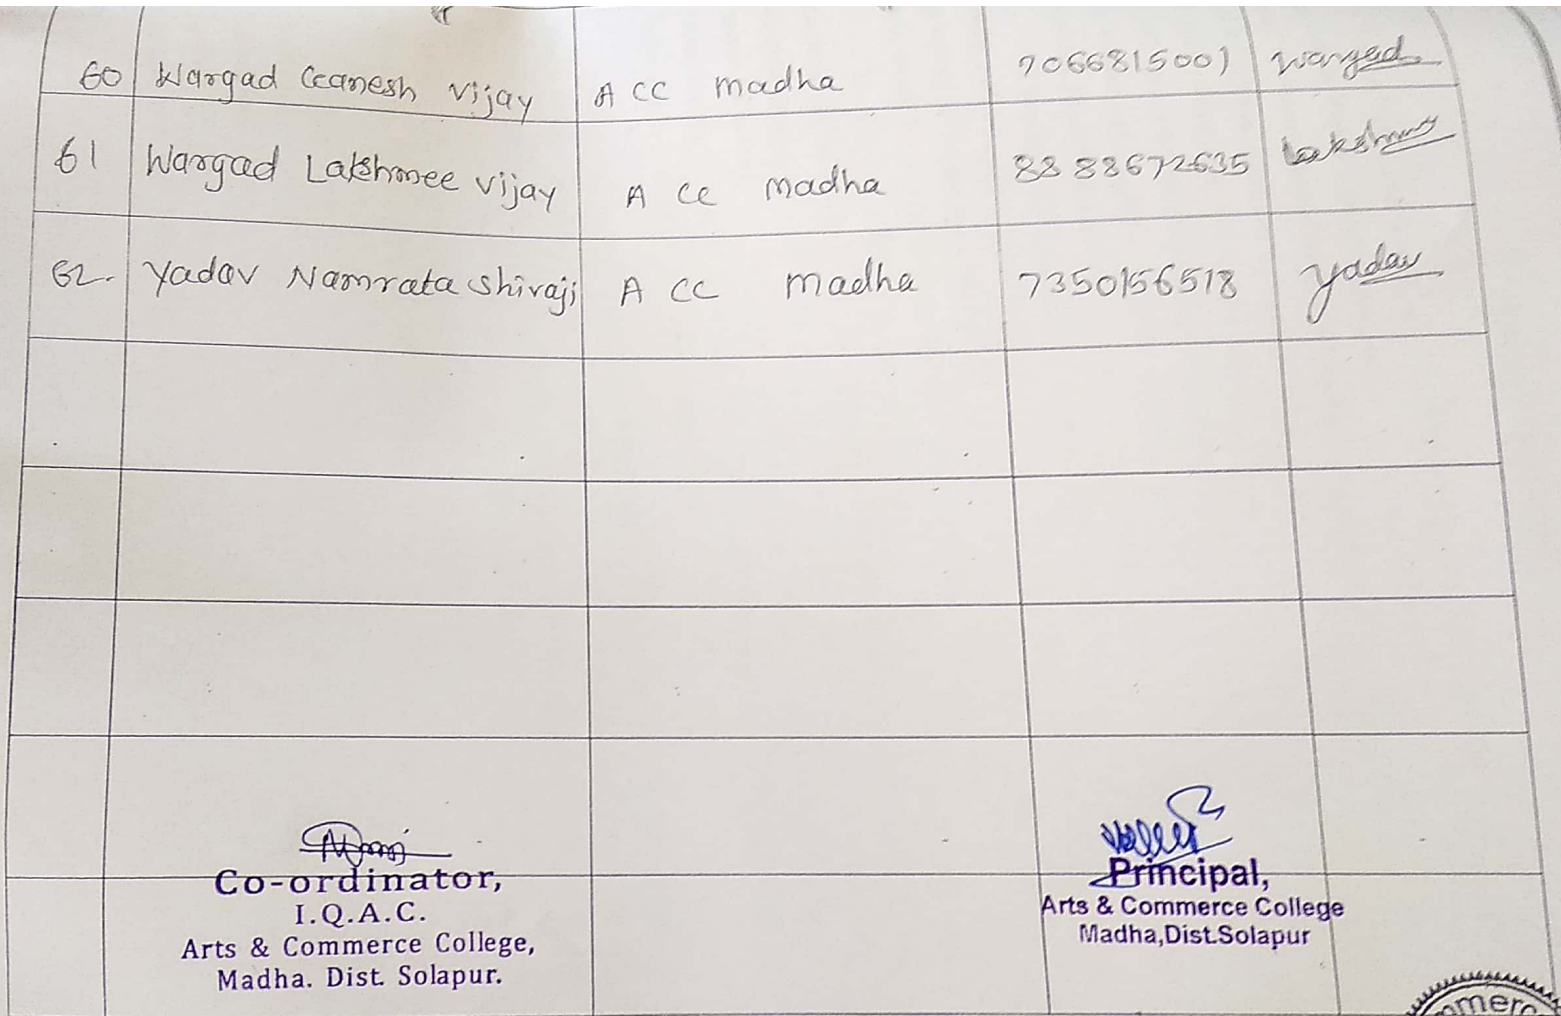 60 Wargad Ganesh vijay A CC madha 7066815001 Wargad
61 Wargad Lakshmee vijay A CC madha 8888672635 Lakshmee
62. Yadav Namrata Shivaji A CC madha 7350156518 yadav
Co-ordinator,
I.Q.A.C.
Arts & Commerce College,
Madha. Dist. Solapur.
Principal,
Arts & Commerce College
Madha,Dist.Solapur